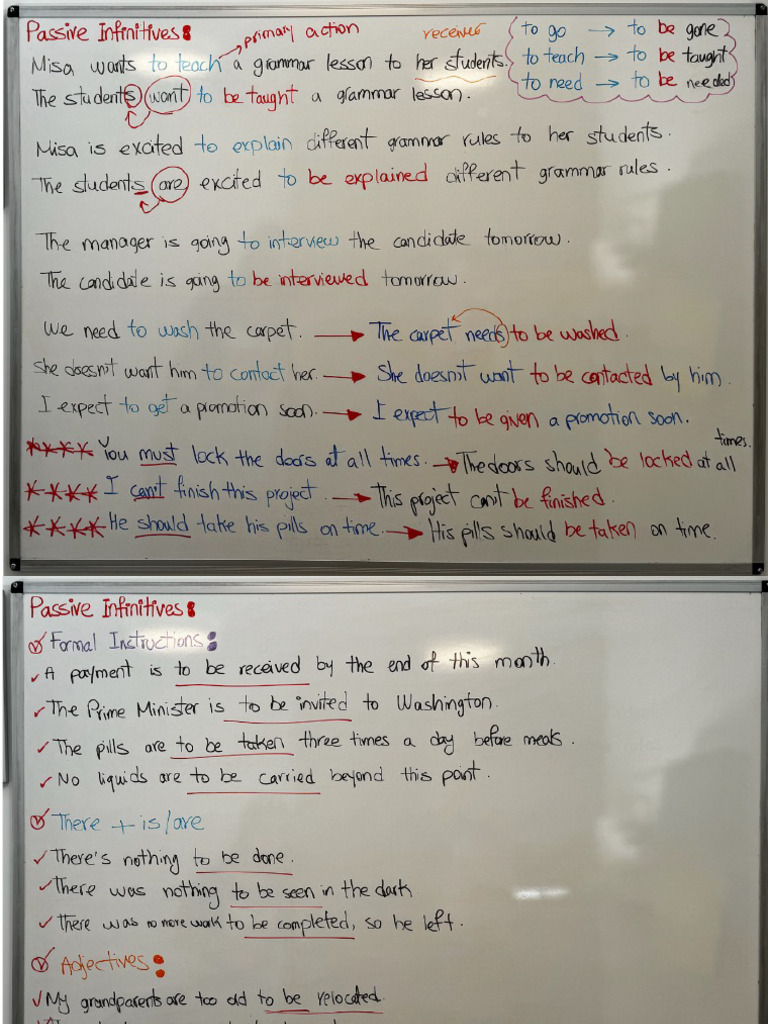 Passive Infinitives:
primary action
receiver
to go → to be gone
to teach → to be taught
to need → to be needed
Misa wants to teach a grammar lesson to her students.
The students want to be taught a grammar lesson.
Misa is excited to explain different grammar rules to her students.
The students are excited to be explained different grammar rules.
The manager is going to interview the candidate tomorrow.
The candidate is going to be interviewed tomorrow.
We need to wash the carpet. → The carpet needs to be washed.
She doesn't want him to contact her. → She doesn't want to be contacted by him.
I expect to get a promotion soon. → I expect to be given a promotion soon.
**** You must lock the doors at all times. → The doors should be locked at all times.
**** I can't finish this project. → This project can't be finished.
**** He should take his pills on time. → His pills should be taken on time.
Passive Infinitives:
Formal Instructions:
✓ A payment is to be received by the end of this month.
✓ The Prime Minister is to be invited to Washington.
✓ The pills are to be taken three times a day before meals.
✓ No liquids are to be carried beyond this point.
There + is/are
✓ There's nothing to be done.
✓ There was nothing to be seen in the dark
✓ There was no more work to be completed, so he left.
Adjectives:
✓ My grandparents are too old to be relocated.